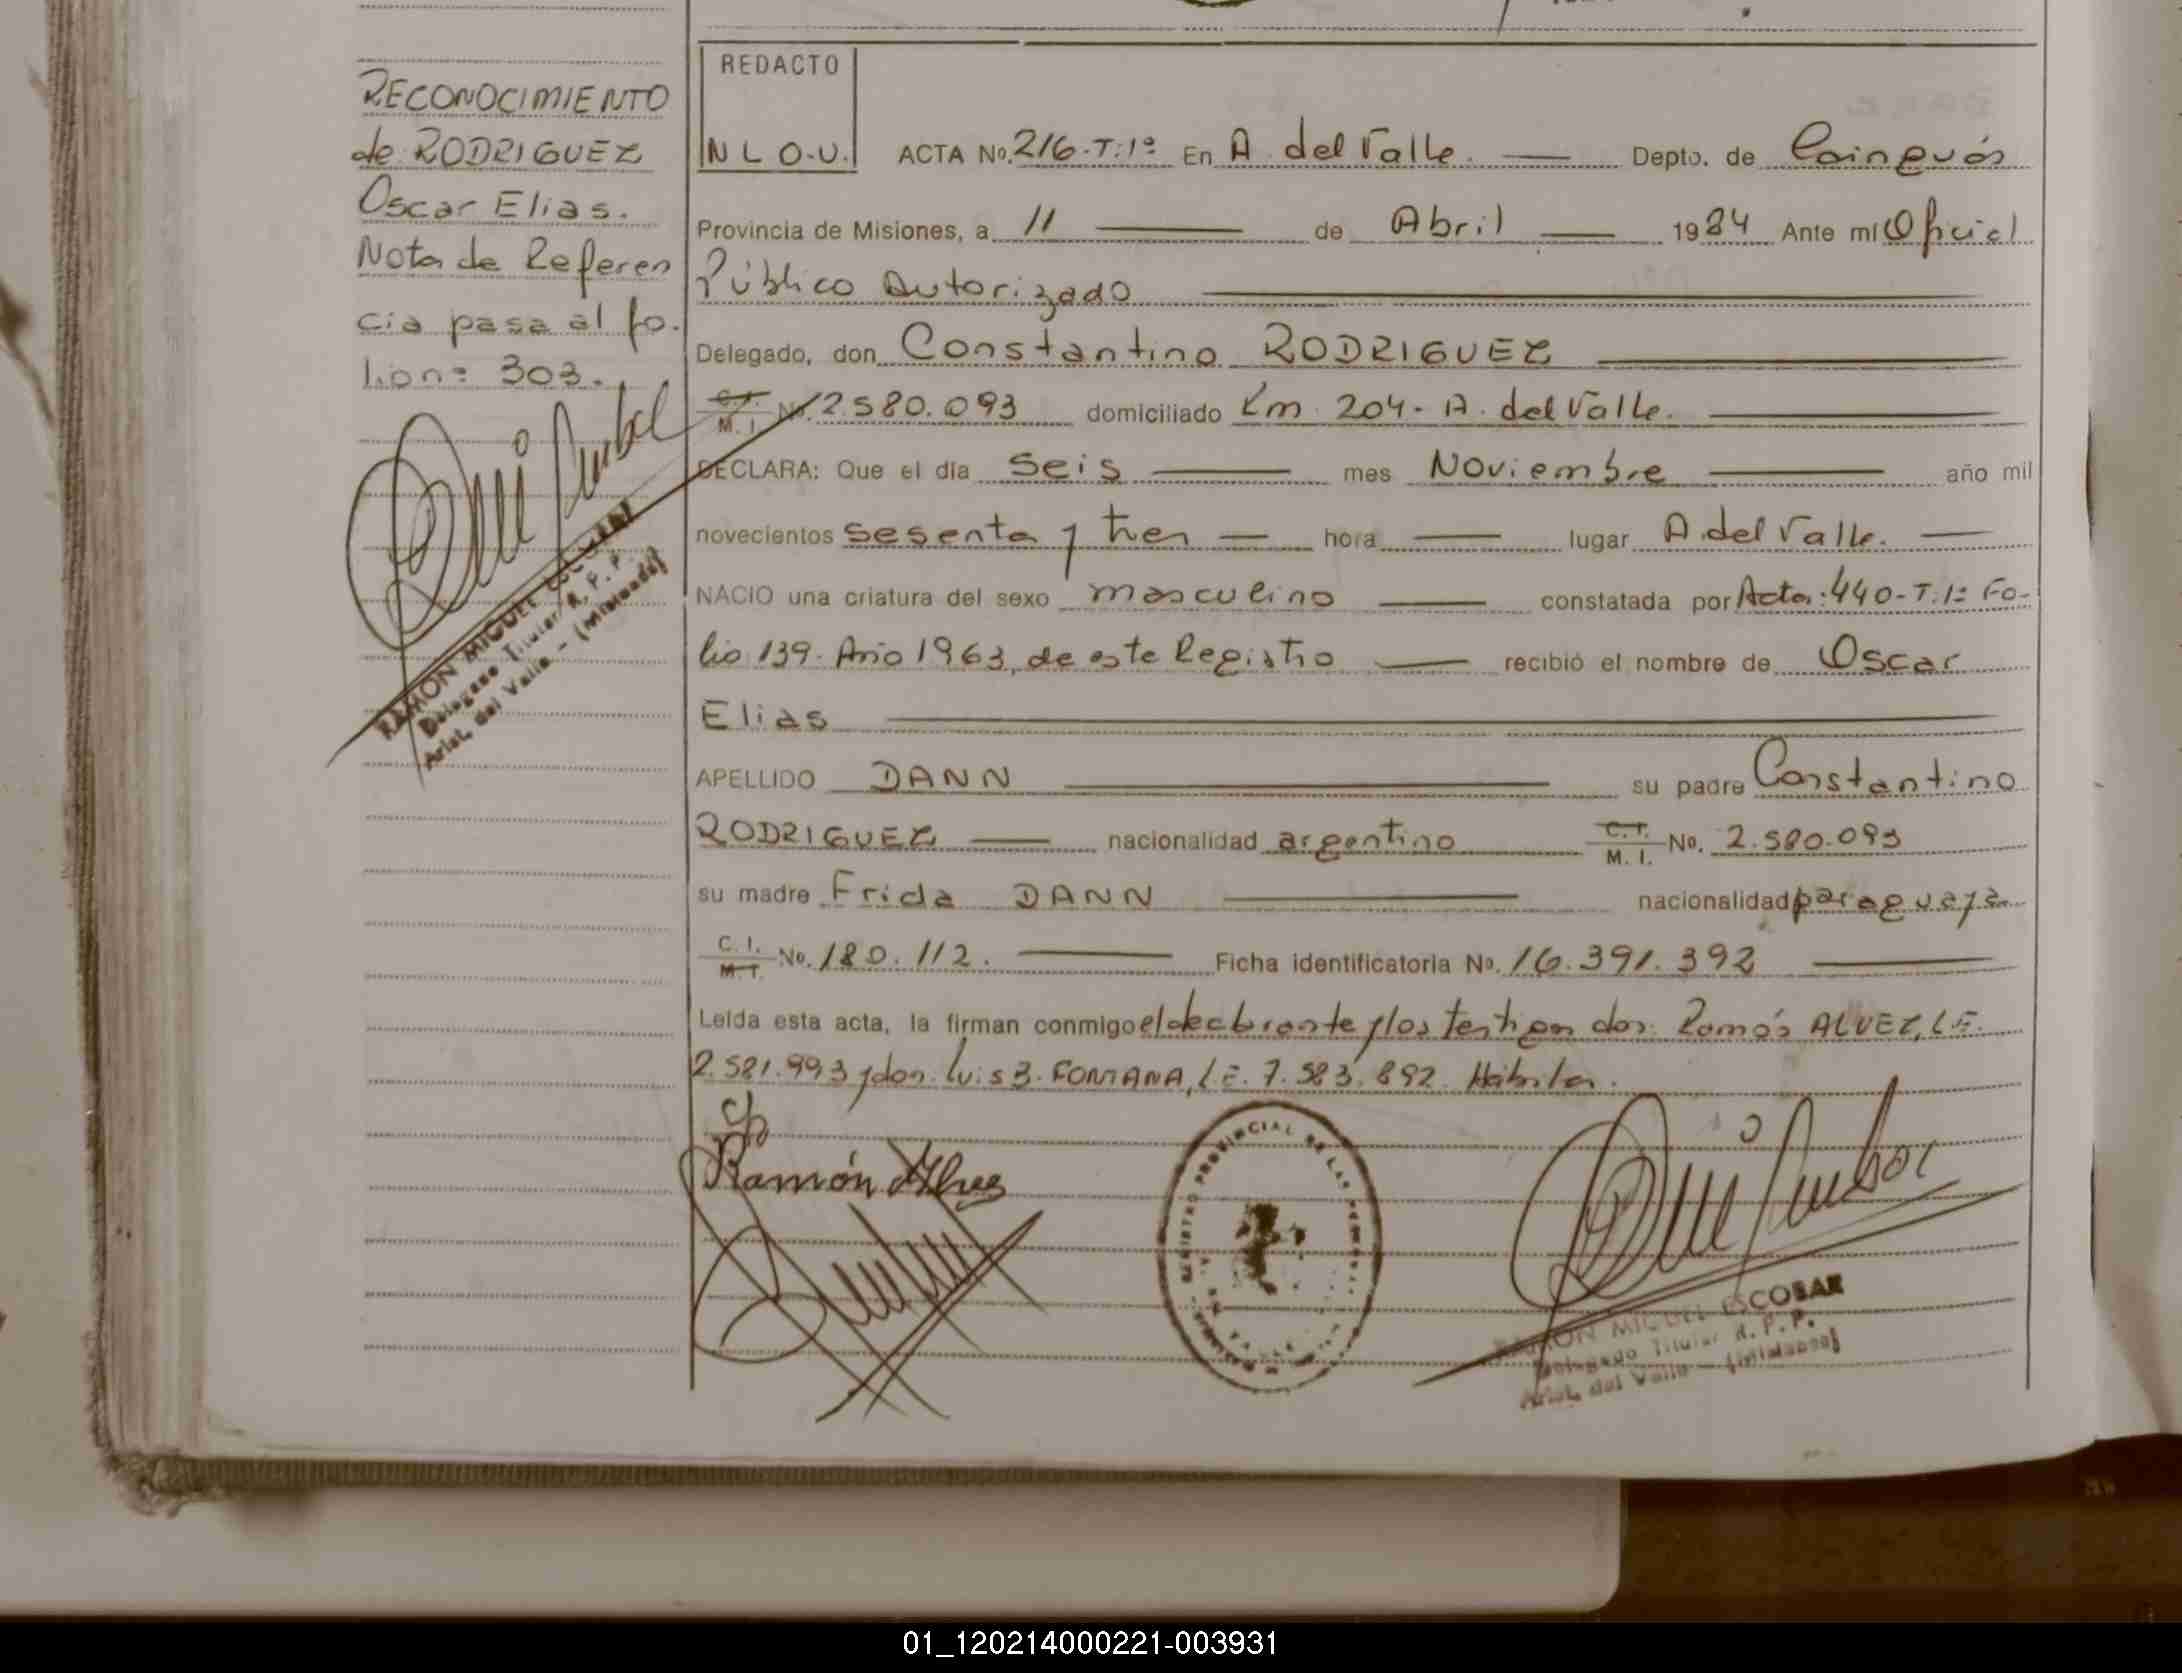 RECONOCIMIENTO
de RODRIGUEZ
Oscar Elias.
Nota de Referen
cia pasa al fo.
lion= 303.
RAMON MIGUEL ESCOBAR
Delegado Titular R. P. P.
Arist. del Valle - (Misiones)
REDACTO
N L O.U.
ACTA No. 216-T:1º En A. del Valle. Depto. de Cainguás
Provincia de Misiones, a 11 de Abril 1984 Ante mí Oficial
Público Autorizado
Delegado, don Constantino RODRIGUEZ
C.I. M. I. No. 2.580.093 domiciliado Km. 204- A. del Valle.
DECLARA: Que el día seis mes Noviembre año mil
novecientos sesenta y tres hora lugar A. del Valle.
NACIO una criatura del sexo masculino constatada por Acta: 440-T:1º Fo-
lio 139- Año 1963, de este Registro recibió el nombre de Oscar
Elias
APELLIDO DANN su padre Constantino
RODRIGUEZ nacionalidad argentino C.I. M. I. No. 2.580.093
su madre Frida DANN nacionalidad paraguaya
C. I. M.I. No. 180.112. Ficha identificatoria No. 16.391.392
Leída esta acta, la firman conmigo el declarante y los testigos don: Ramón ALVEZ, L.E.
2.581.993 y don. Luis B. FONTANA, L.E. 7.583.892. Hábiles.
Ramón Alvez
REGISTRO PROVINCIAL DE LAS PERSONAS
RAMON MIGUEL ESCOBAR
Delegado Titular R. P. P.
Arist. del Valle - (Misiones)
01_120214000221-003931